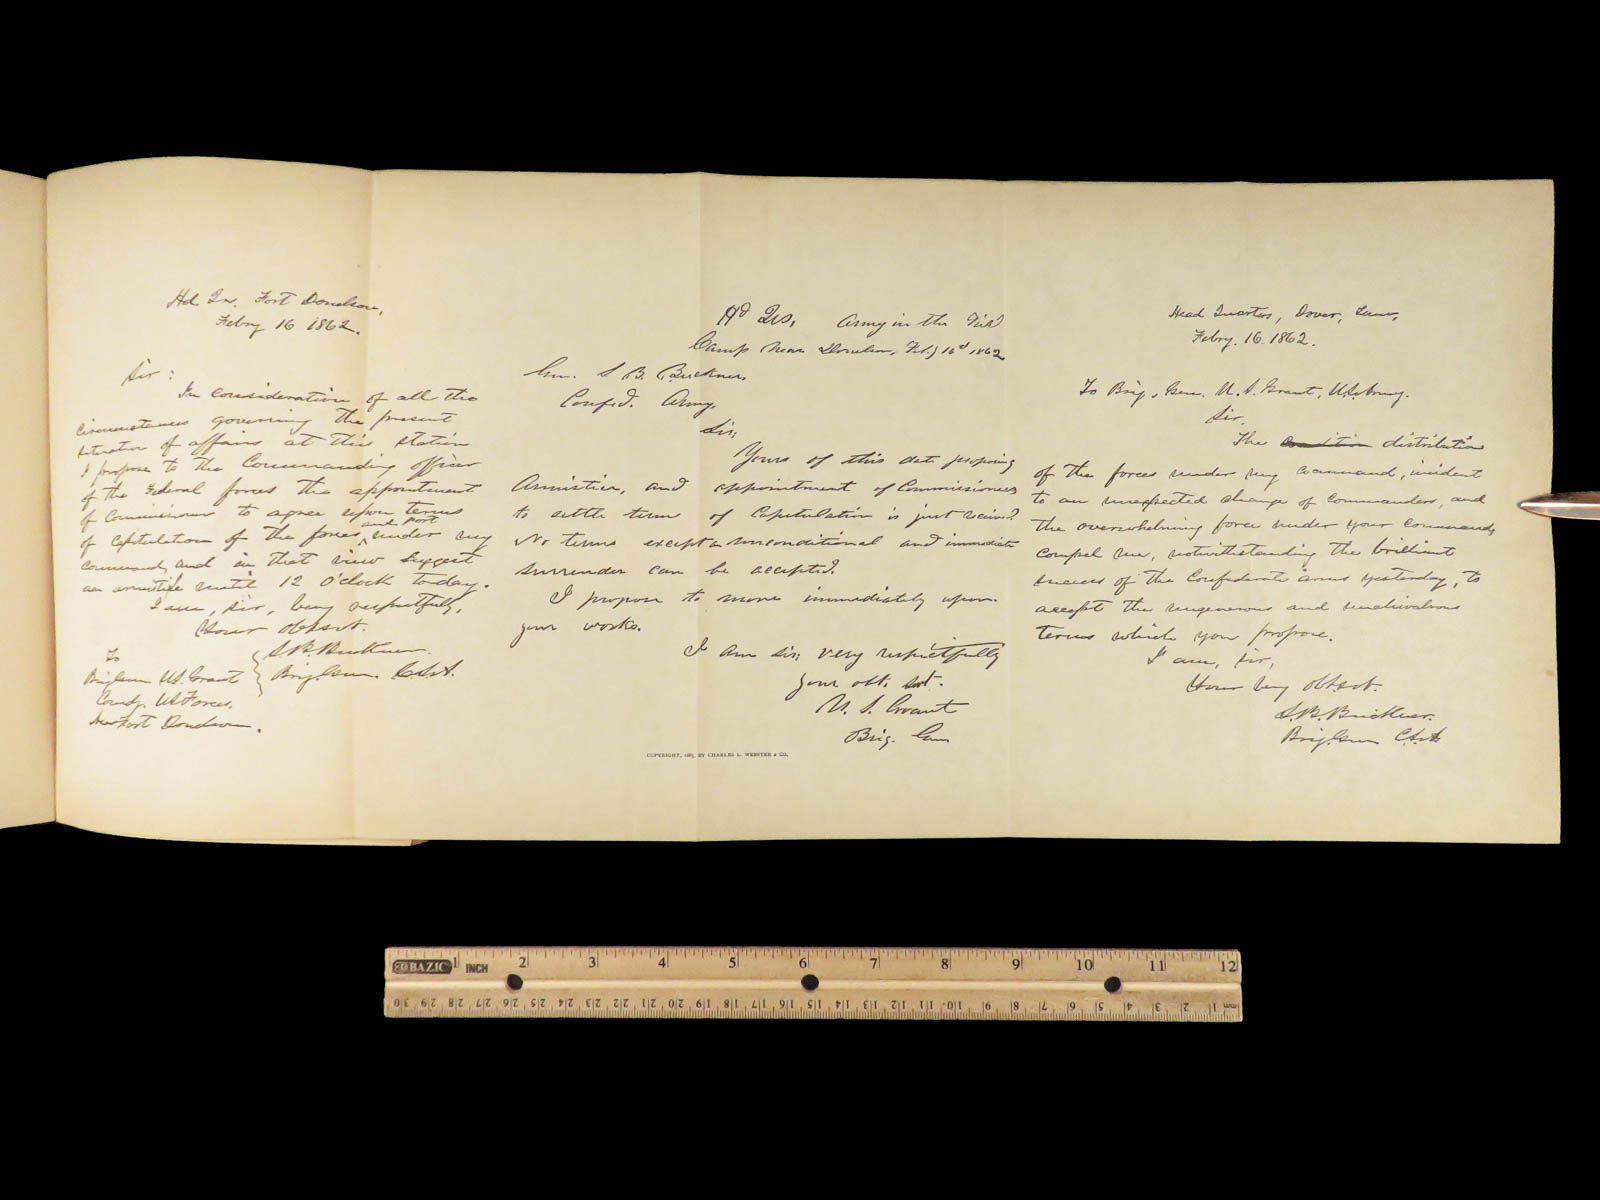 Hd Qr. Fort Donelson,
Febry 16 1862.
Sir:
In consideration of all the
circumstances governing the present
situation of affairs at this station
I propose to the Commanding officer
of the Federal forces the appointment
of Commissioners to agree upon terms
of capitulation of the forces and Fort under my
command, and in that view suggest
an armistice until 12 O'clock to-day.
I am, sir, very respectfully,
Your obt sevt.
S. B. Buckner.
Brig. Gen. C.S.A.
To
Brig Gen U.S. Grant
Comdg. US Forces.
Near Fort Donelson.
Hd Qrs, Army in the Field
Camp Near Donelson, Feby 16th 1862
Gen. S. B. Buckner,
Confed. Army,
Sir;
Yours of this date proposing
Armistice, and appointment of Commissioners
to settle terms of Capitulation is just received.
No terms except an unconditional and immediate
surrender can be accepted.
I propose to move immediately upon
your works.
I am sir; very respectfully
your obt. svt.
U. S. Grant
Brig. Gen
COPYRIGHT, 1885, BY CHARLES L. WEBSTER & CO.
Head Quarters, Dover, Tenn,
Febry. 16. 1862.
To Brig, Gen. U. S. Grant, U.S. Army.
Sir,
The condition distribution
of the forces under my command, incident
to an unexpected change of commanders, and
the overwhelming force under your command,
compel me, notwithstanding the brilliant
success of the Confederate arms yesterday, to
accept the ungenerous and unchivalrous
terms which you propose.
I am, sir,
Your very obt svt.
S. B. Buckner.
Brig. Gen C.S.A.
BAZIC 1 INCH 2 3 4 5 6 7 8 9 10 11 12
30 29 28 27 26 25 24 23 22 21 20 19 18 17 16 15 14 13 12 11 10 9 8 7 6 5 4 3 2 1 mm